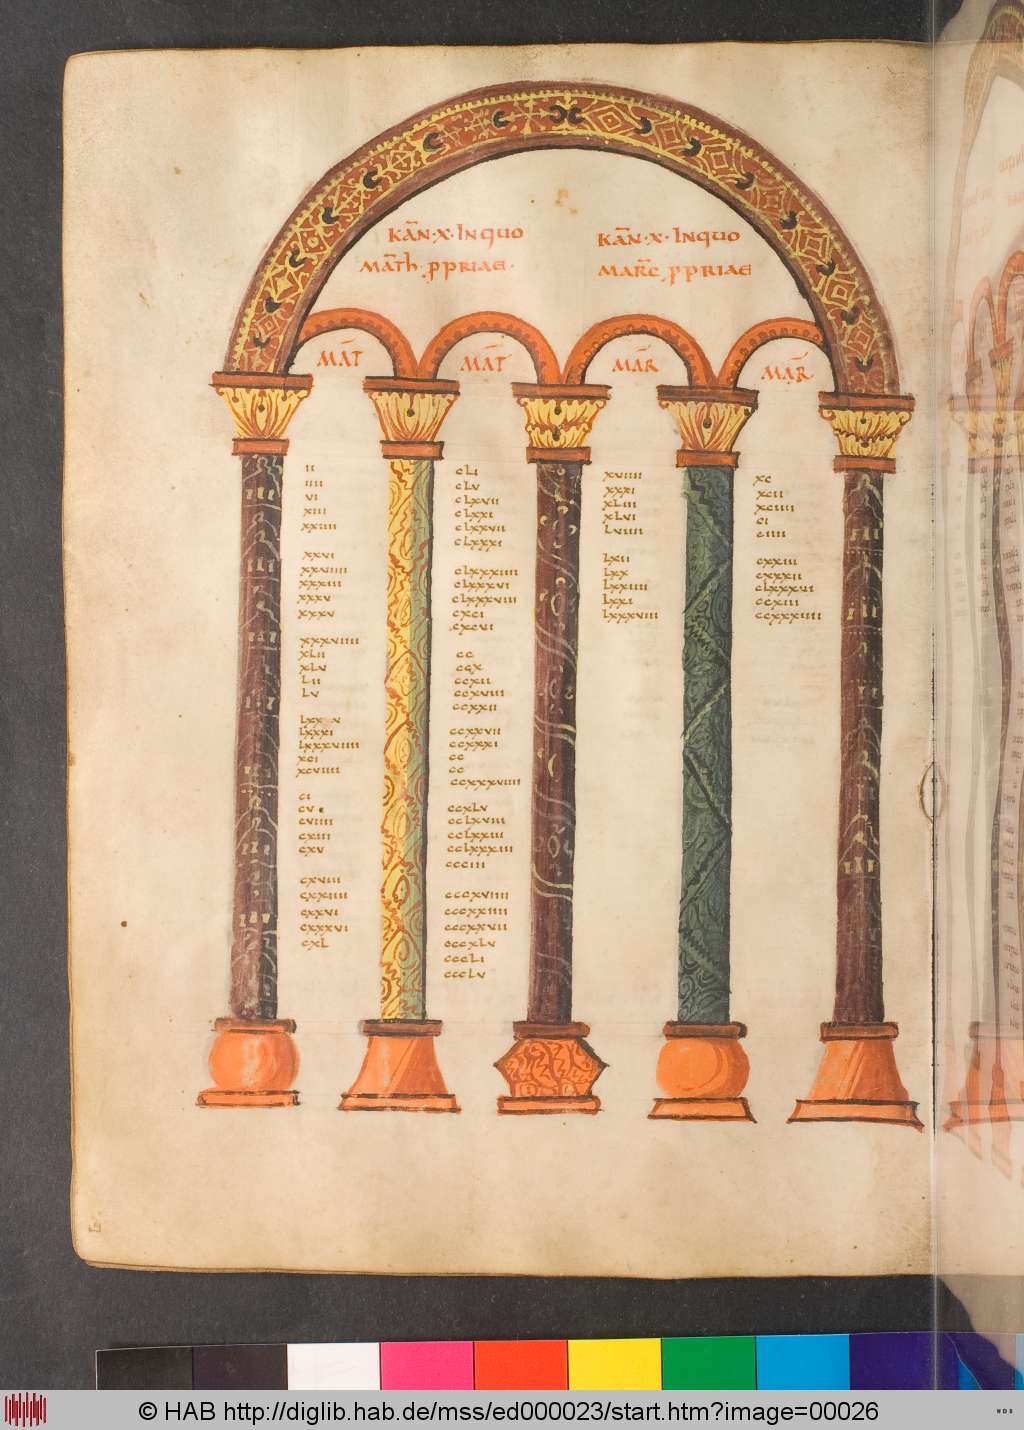 KAN·X·INQUO
MATH PPRIAE·
KAN·X·INQUO
MARC PPRIAE
MAT
MAT
MAR
MAR
II
IIII
VI
XIII
XXIIII
XXVI
XXVIIII
XXXIII
XXXV
XXXV
XXXVIIII
XLII
XLV
LII
LV
LXXXI
LXXXVIIII
XCI
XCVIIII
CI
CV
CVIIII
CXIII
CXV
CXVIII
CXXIIII
CXXVI
CXXXVI
CXL
CLI
CLV
CLXVII
CLXXI
CLXXVII
CLXXXI
CLXXXIIII
CLXXXVI
CLXXXVIII
CXCI
CXCVI
CC
CCX
CCXII
CCXVIII
CCXXII
CCXXVII
CCXXXI
CC
CC
CCXXXVIIII
CCXLV
CCLXVIII
CCLXXIII
CCLXXXIII
CCCIII
CCCXVIIII
CCCXXIIII
CCCXXVII
CCCXLV
CCCLI
CCCLV
XVIIII
XXXI
XLIII
XLVI
LVIIII
LXII
LXX
LXXIIII
LXXI
LXXXVIII
XC
XCII
XCIIII
CI
CIIII
CXXIII
CXXXII
CLXXXVI
CCXIII
CCXXXIIII
© HAB http://diglib.hab.de/mss/ed000023/start.htm?image=00026